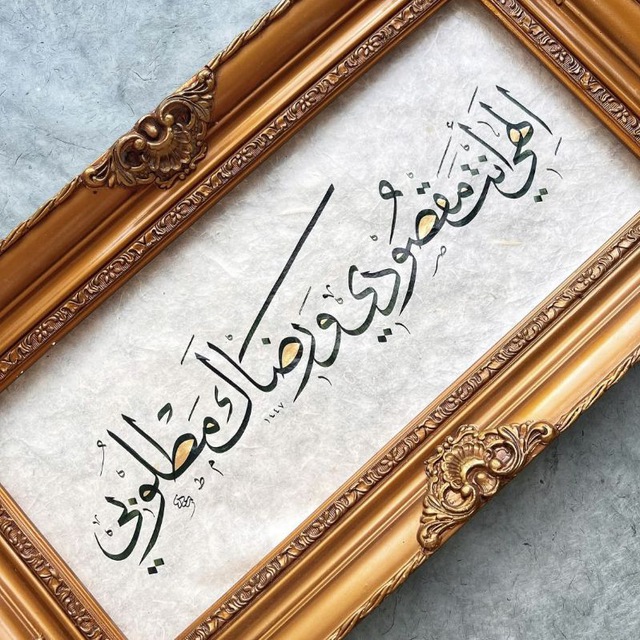 الهي أنت مقصودي ورضاك مطلوبي
١٤٤٧